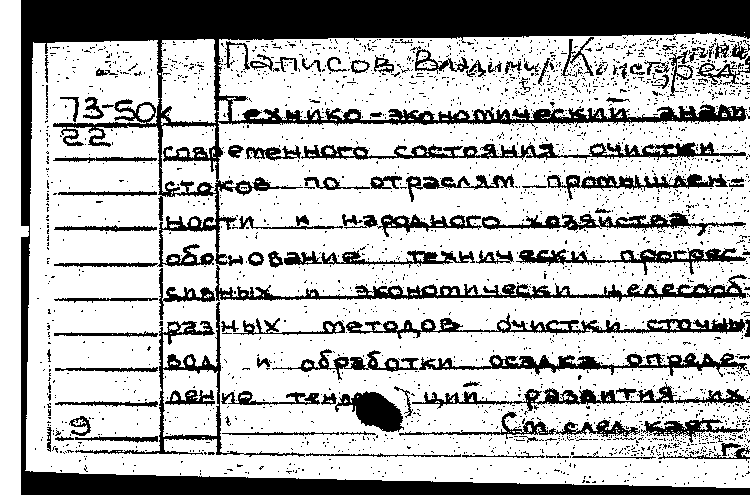 Паписов Владимир
73-50к Технико-экономический анали
22
современного состояния очистки
стоков по отраслям промышлен-
ности и народного хозяйства,
обоснование технически прогрес-
сивных и экономически целесооб-
разных методов очистки сточны
вод и обработки осадка, опреде-
ление тенд ций развития их
9 См. след. карт.